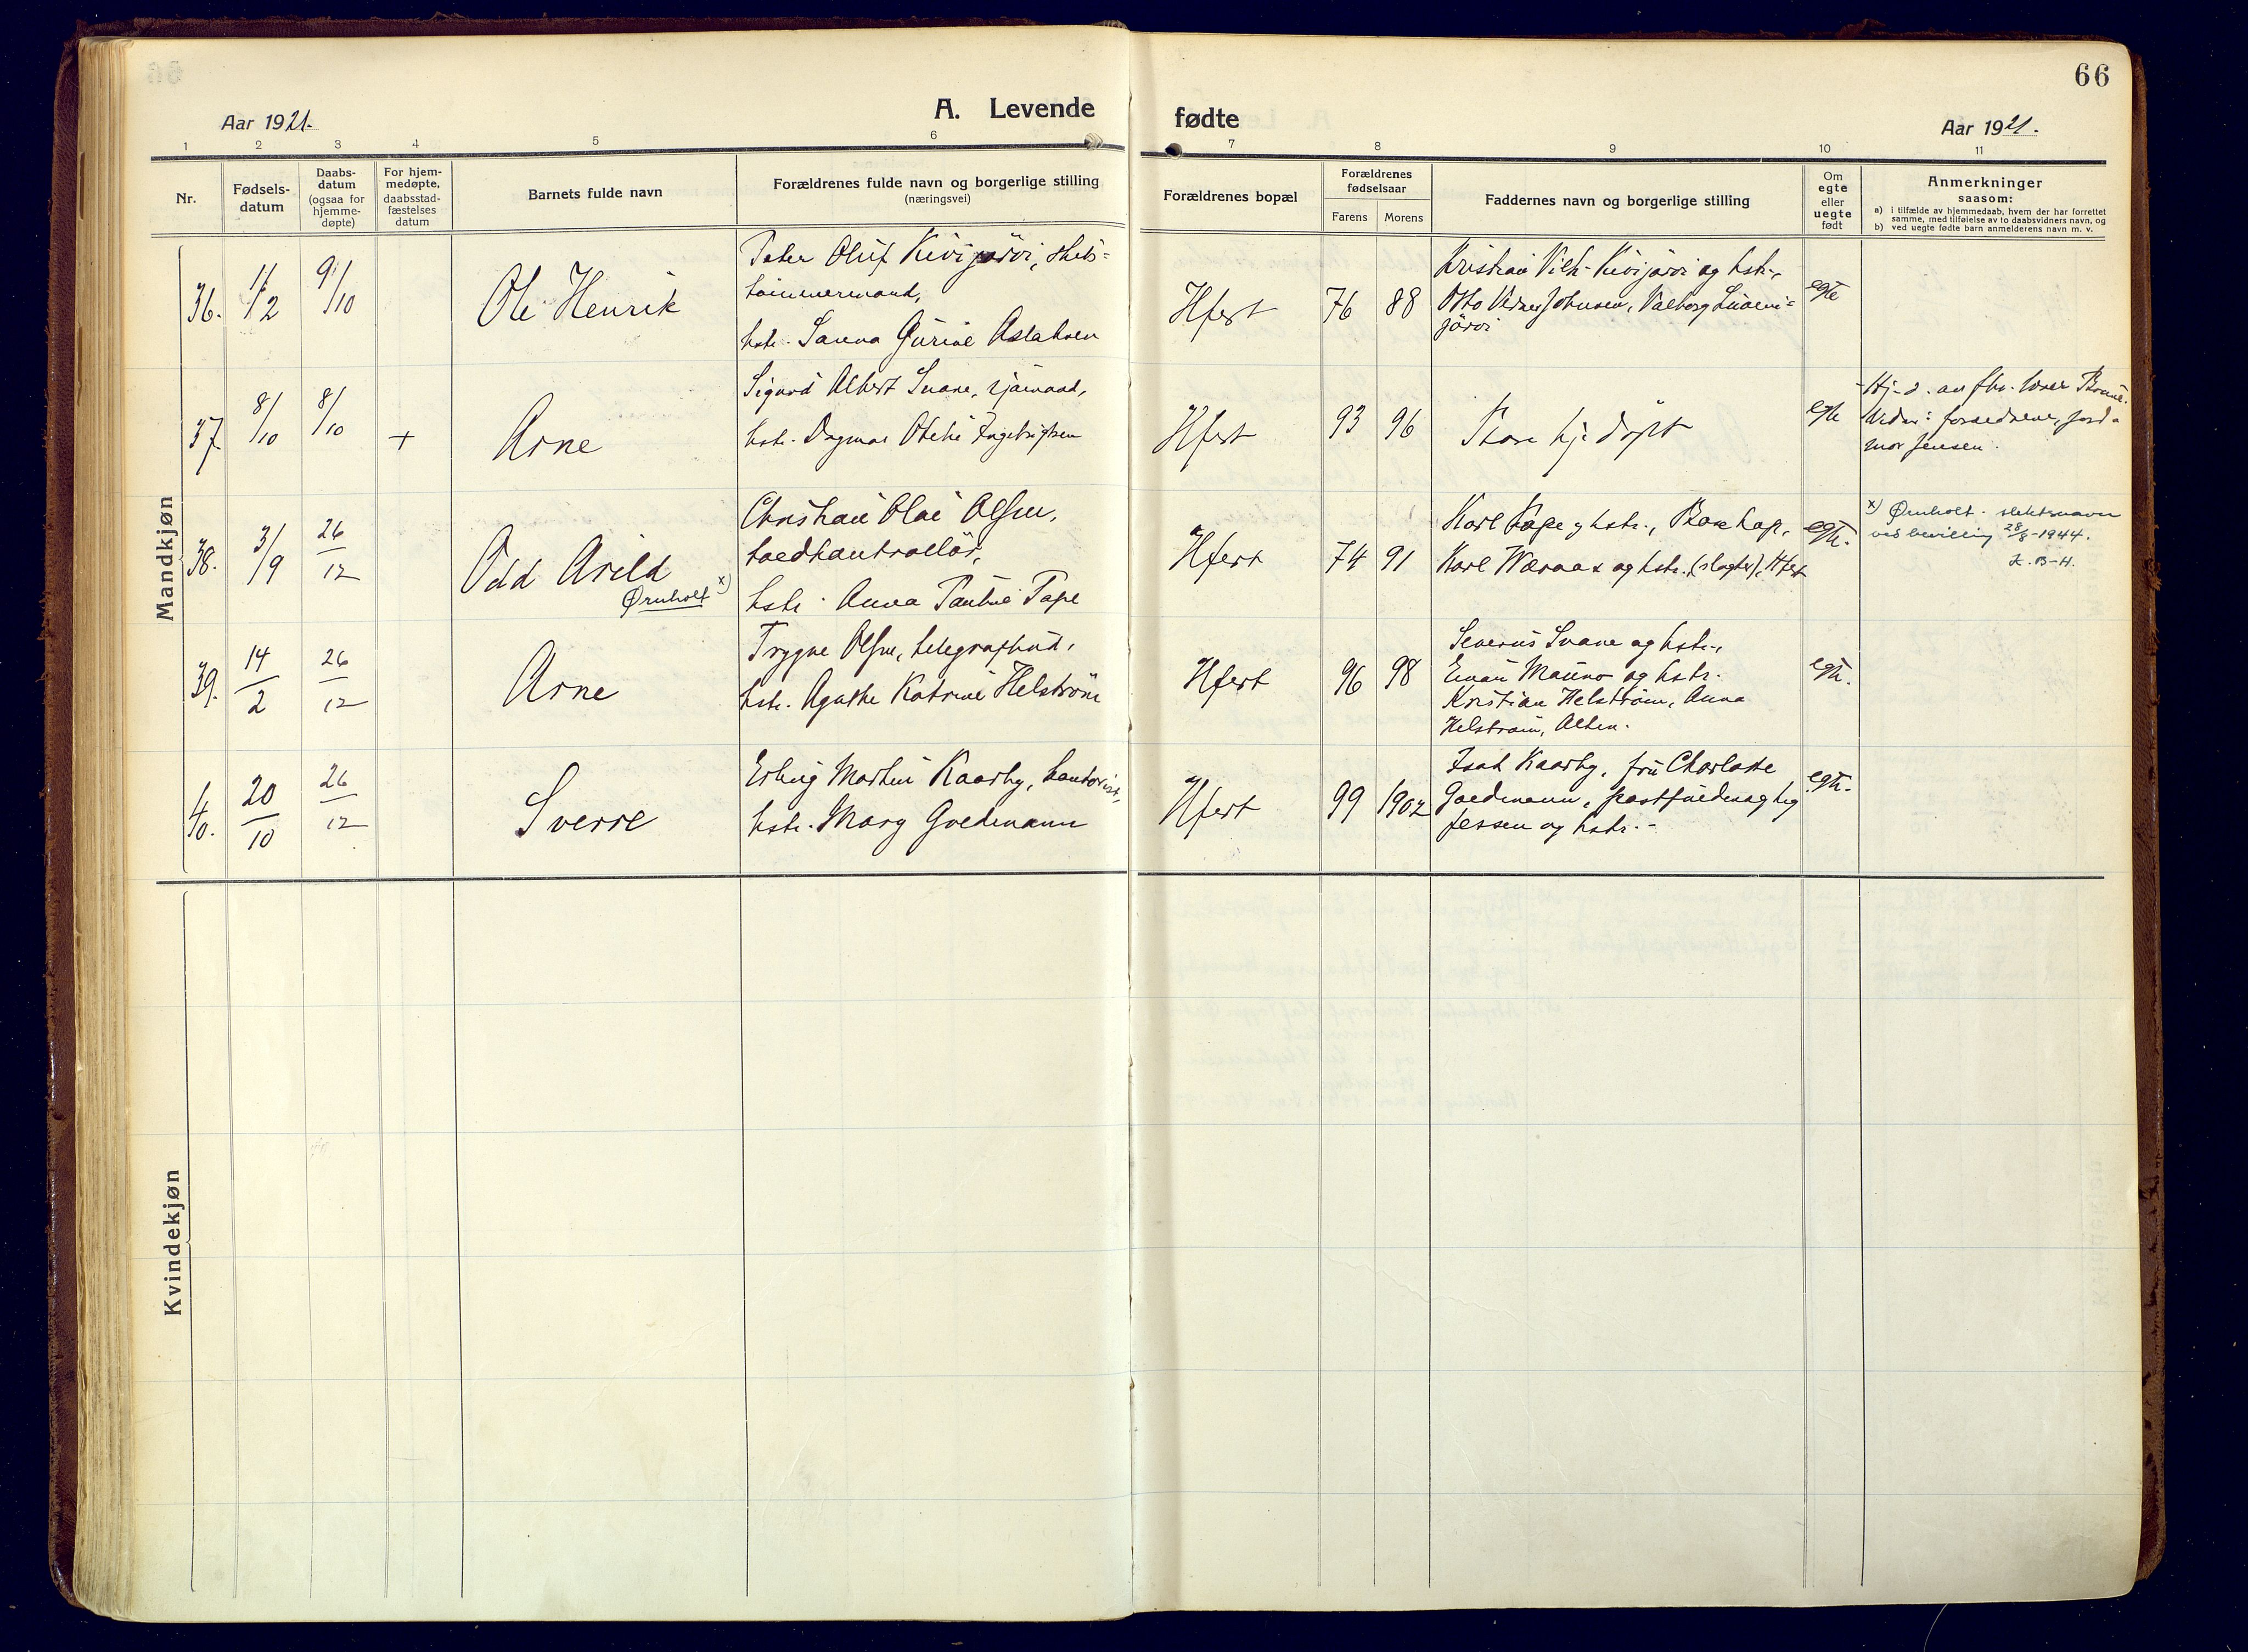 66
Aar 1921.
A. Levende
fødte
Aar 1921.
1 2 3 4 5 6 7 8 9 10 11
Nr.
Fødsels-
datum
Daabs-
datum
(ogsaa for
hjemme-
døpte)
For hjem-
medøpte,
daabsstad-
fæstelses
datum
Barnets fulde navn
Forældrenes fulde navn og borgerlige stilling
(næringsvei)
Forældrenes bopæl
Forældrenes
fødselsaar
Farens Morens
Faddernes navn og borgerlige stilling
Om
egte
eller
uegte
født
Anmerkninger
saasom:
a) i tilfælde av hjemmedaab, hvem der har forrettet
samme, med tilføielse av to daabsvidners navn, og
b) ved uegte fødte barn anmelderens navn m. v.
Mandkjøn
36.
11/2
9/10
Ole Henrik
Peder Oluf Kivijärvi, skibs-
tømmermand,
hstr. Sanna Gurine Aslaksen
Hfest
76 88
Kristian Vilh. Kivijärvi og hstr.,
Otto Johnsen, Valborg
järvi
egte
37
8/10
8/10
+
Arne
Sigurd Albert Svane, sjømand,
hstr. Dagmar Ingebrigtsen
Hfest
93 96
hj. døpt
egte
Hj. d. av
Vidner: forældrene, jord-
mor Jensen.
38.
3/9
26/12
Odd Arild
Ørnholt x)
Christian Olai Olsen,
toldkontrollør,
hstr. Anna Pauline Pape
Hfest
74 91
Karl Pape og hstr., Bosekop,
Karl Wæraas og hstr. (slagter), Hfest
egte.
x) Ørnholt - slektsnavn
ved bevilling 28/8-1944.
K. B-H.
39.
14/2
26/12
Arne
Trygve Olsen, telegrafbud,
hstr. Agathe Katrine Helstrøm
Hfest
96 98
Severin Svane og hstr.,
Einar Mauno og hstr.
Kristian Helstrøm, Anna
Helstrøm, Alten.
egte.
40.
20/10
26/12
Sverre
Erling Martin Kaarby, kontorist,
hstr. Mary Goedmann
Hfest
99 1902
Isak Kaarby, fru Charlotte
Goedmann, postfuldmægtig
Jessen og hstr. -
egte.
Kvindekjøn